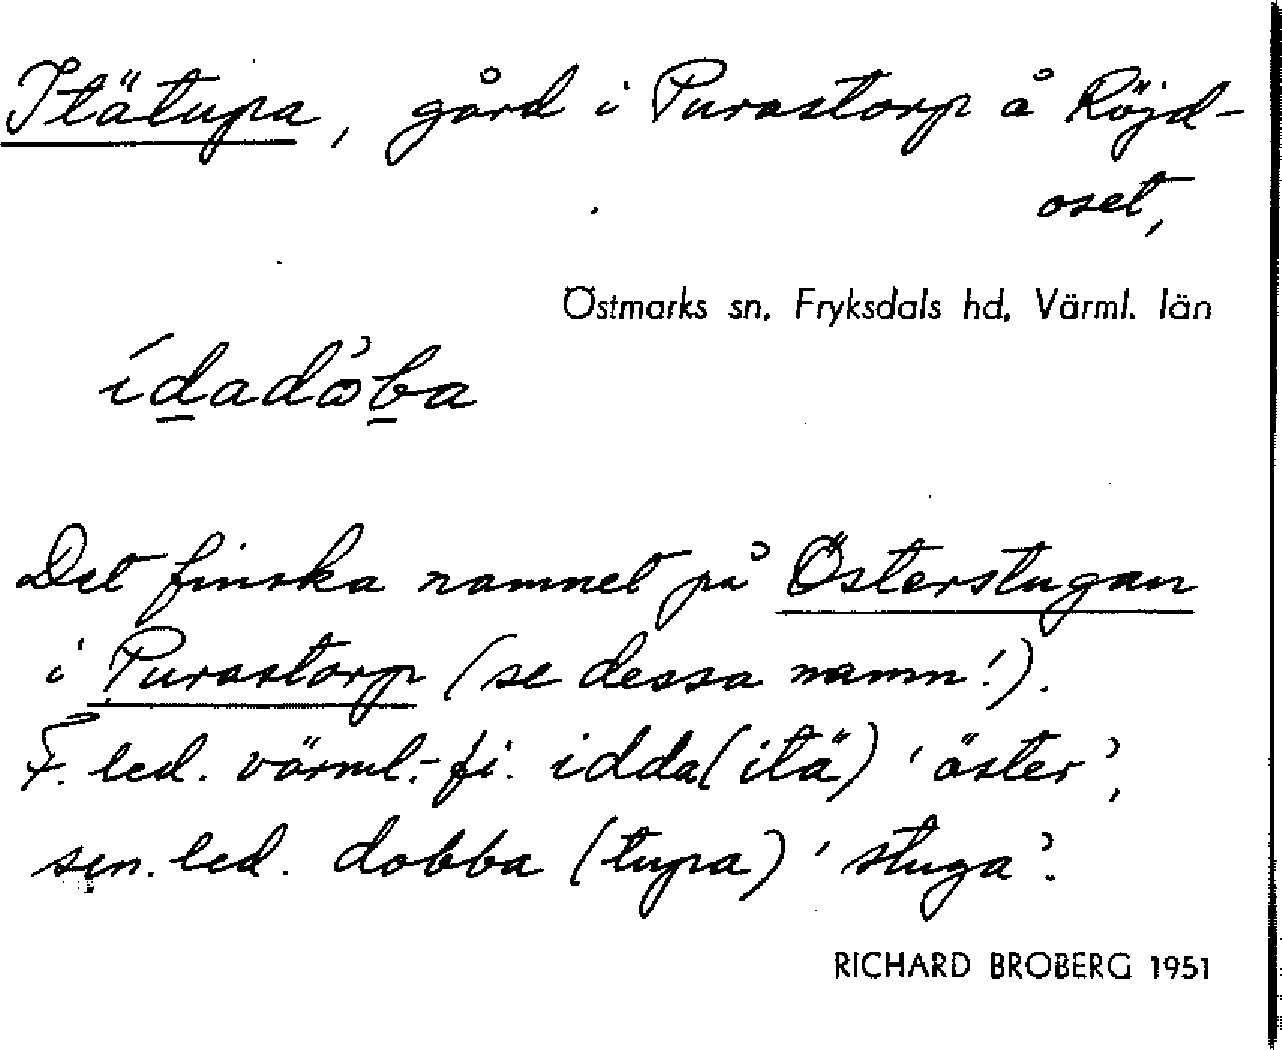 Itätupa, gård i Purastorp å Röjd-
oset,
Östmarks sn, Fryksdals hd, Värml. län
ídadὼba
Det finska namnet på Österstugan
i Purastorp (se dessa namn!).
F. led. värml.-fi. idda (itä) 'öster',
sen. led. dobba (tupa) 'stuga'.
RICHARD BROBERG 1951